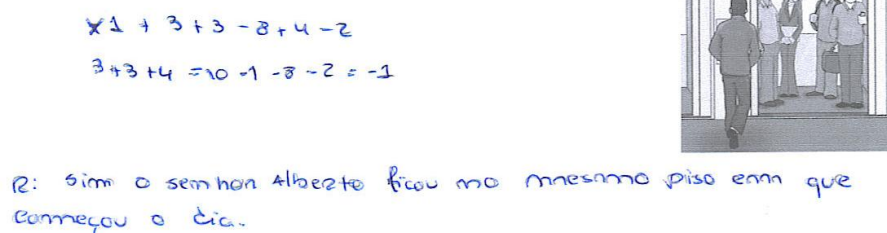 x1 + 3 + 3 - 8 + 4 - 2
3+3+4 = 10 -1 -8 -2 = -1
R: Sim o senhor Alberto ficou no mesmo piso em que
começou o dia.